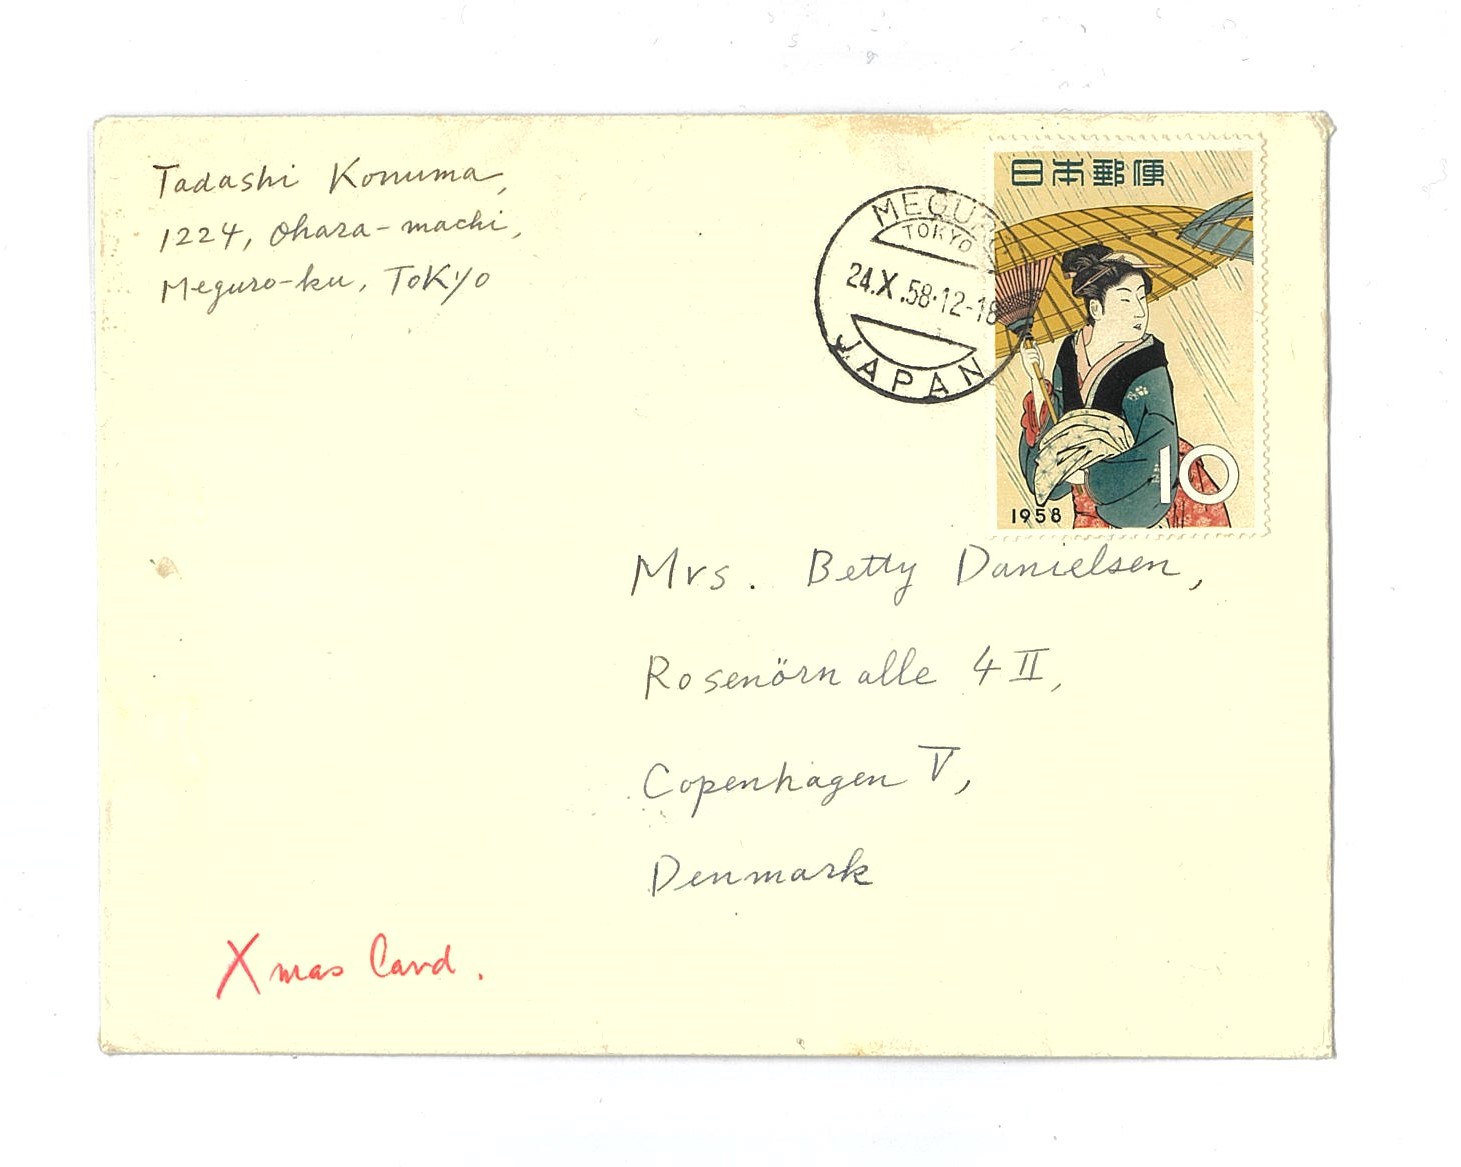 Tadashi Konuma,
1224, Ohara-machi,
Meguro-ku, ToKyo
日本郵便
MEGURO
TOKYO
24.X.58.12-18
JAPAN
10
1958
Mrs. Betty Danielsen,
Rosenörn alle 4 II,
Copenhagen V,
Denmark
Xmas Card.